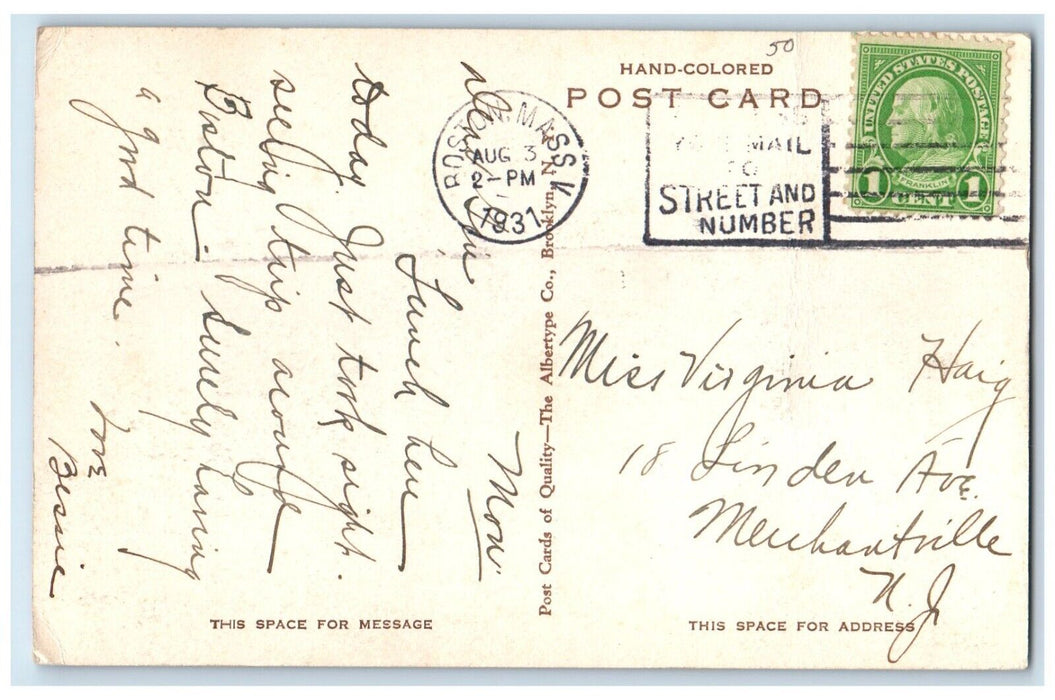 50
HAND-COLORED
POST CARD
BOSTON, MASS.
AUG 3
2-PM
1931
MAIL
TO
STREET AND
NUMBER
UNITED STATES POSTAGE
FRANKLIN
1 CENT 1
Mon
Lunch here
today. Just took sight
seeing trip around
Boston. Surely having
a good time.
Love
Bessie
Post Cards of Quality—The Albertype Co., Brooklyn, N. Y.
Miss Virginia Haig
18 Linden Ave.
Merchantville
N. J.
THIS SPACE FOR MESSAGE
THIS SPACE FOR ADDRESS